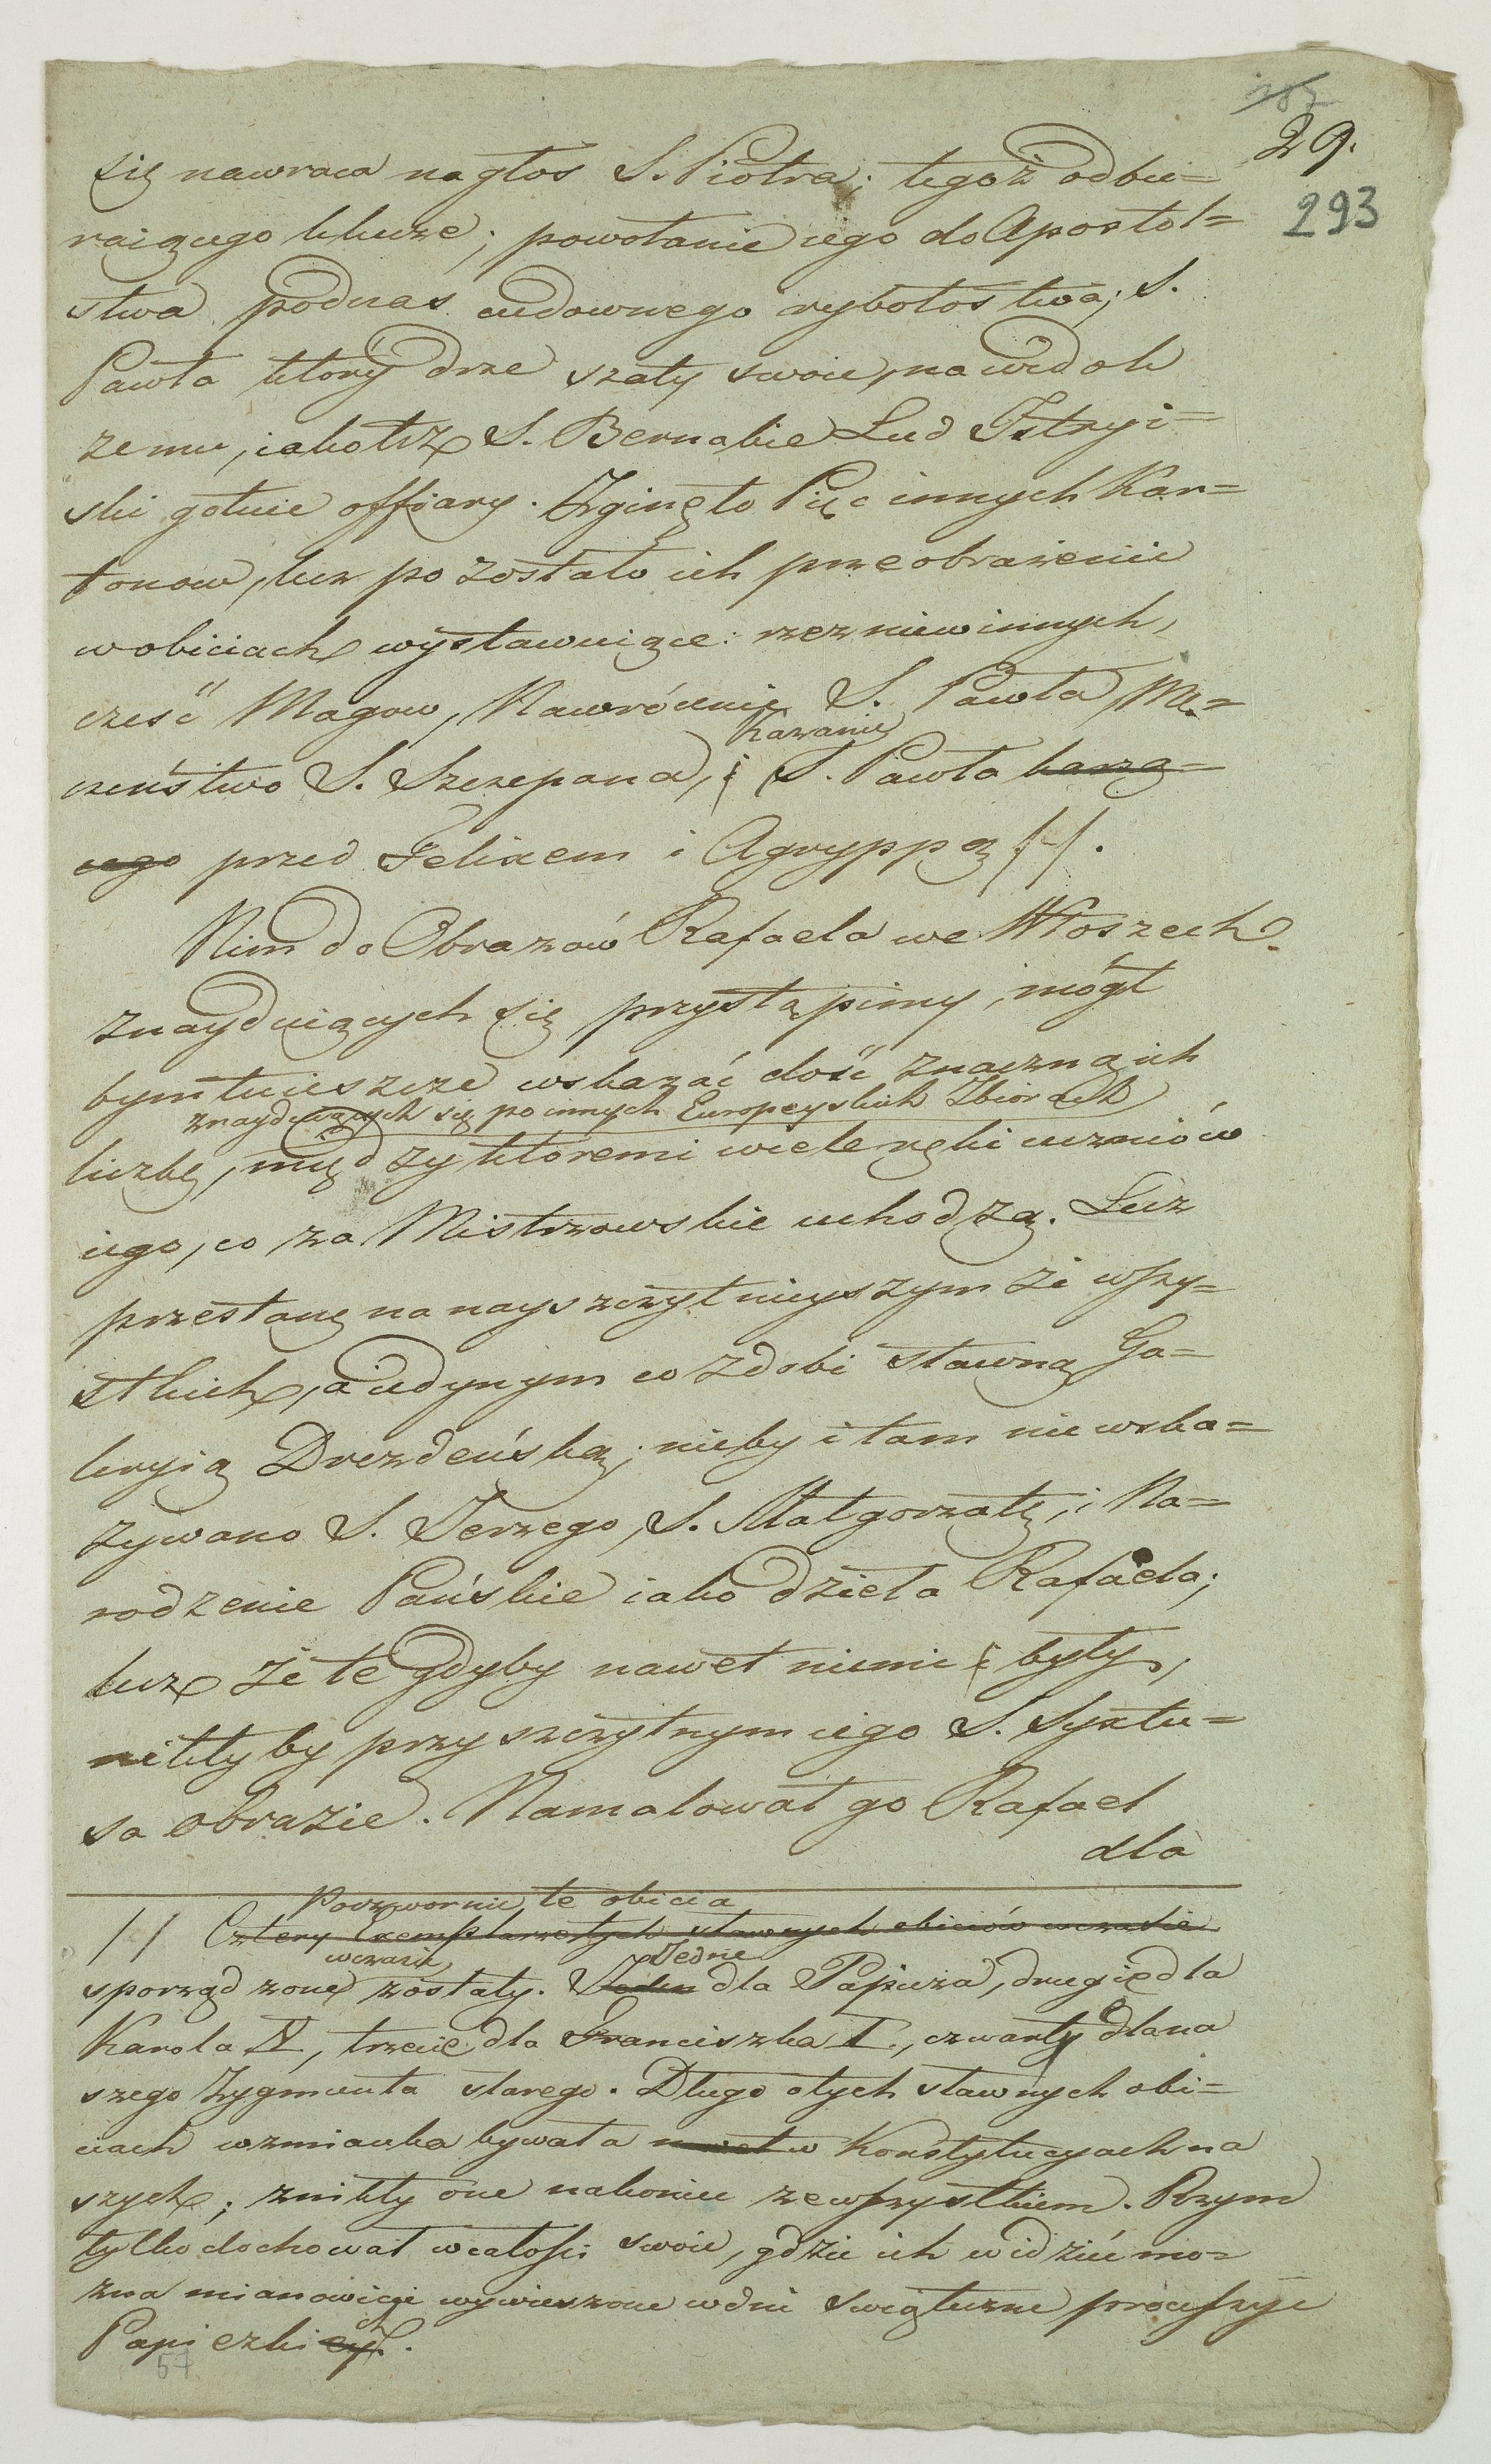 29.
293
się nawraca na głos S. Piotra; tegoż odbie=
raiącego klucze; powołanie iego do Apostol=
stwa podczas cudownego rybołostwa; S.
Pawła który drze szaty swoie, na widok
że mu, iako też S. Bernabie Lud Istryi=
ski gotuie offiary. Zginęło Pięc innych Kar=
tonow, lecz pozostało ich przeobrażenie
w obiciach wystawuiące: rzez niewinnych,
cześć Magow, Nawrócenie S. Pawła Mę=
Kazanie
czeństwo S. Szczepana, i S. Pawła każą=
cego przed Felixem i Agryppą //.
Nim do Obrazów Rafaela we Włoszech
znayduiących się przystąpimy, mógł
bym tu ieszcze wskazać dość znaczną ich
znayduiących się po innych Europeyskich Zbiorach
liczbę, między któremi wiele ręki uczniów
iego, co za Mistrzowskie uchodzą. Lecz
przestanę na nayszczytnieyszym ze wszy=
stkich, a iedynym co zdobi sławną Ga=
leryią Drezdeńską; nieby i tam nie wska=
zywano S. Jerzego, S. Małgorzatę, i Na=
rodzenie Pańskie iako dzieła Rafaela;
lecz że te gdyby nawet niemi i były,
nikłyby przy szczytnym iego S. Syxtu=
sa obrazie. Namalował go Rafael
dla
Poczwornie te obicia
// Cztery Exemplarze tych sławnych obiciów w czasie
w czasie Jedne
sporządzone zostały. Jeden dla Papieża, drugie dla
Karola V, trzecie dla Franciszka I., czwarte dla na
szego Zygmunta starego. Długo o tych sławnych obi=
ciach wzmianka bywała nawet w Konstytucyach na
szych; znikły one nakoniec ze wszystkiem. Rzym
tylko dochował w całości swoie, gdzie ich widzieć mo=
żna mianowicie wywieszone w dni swiąteczne processyi
Papiezkich.
57